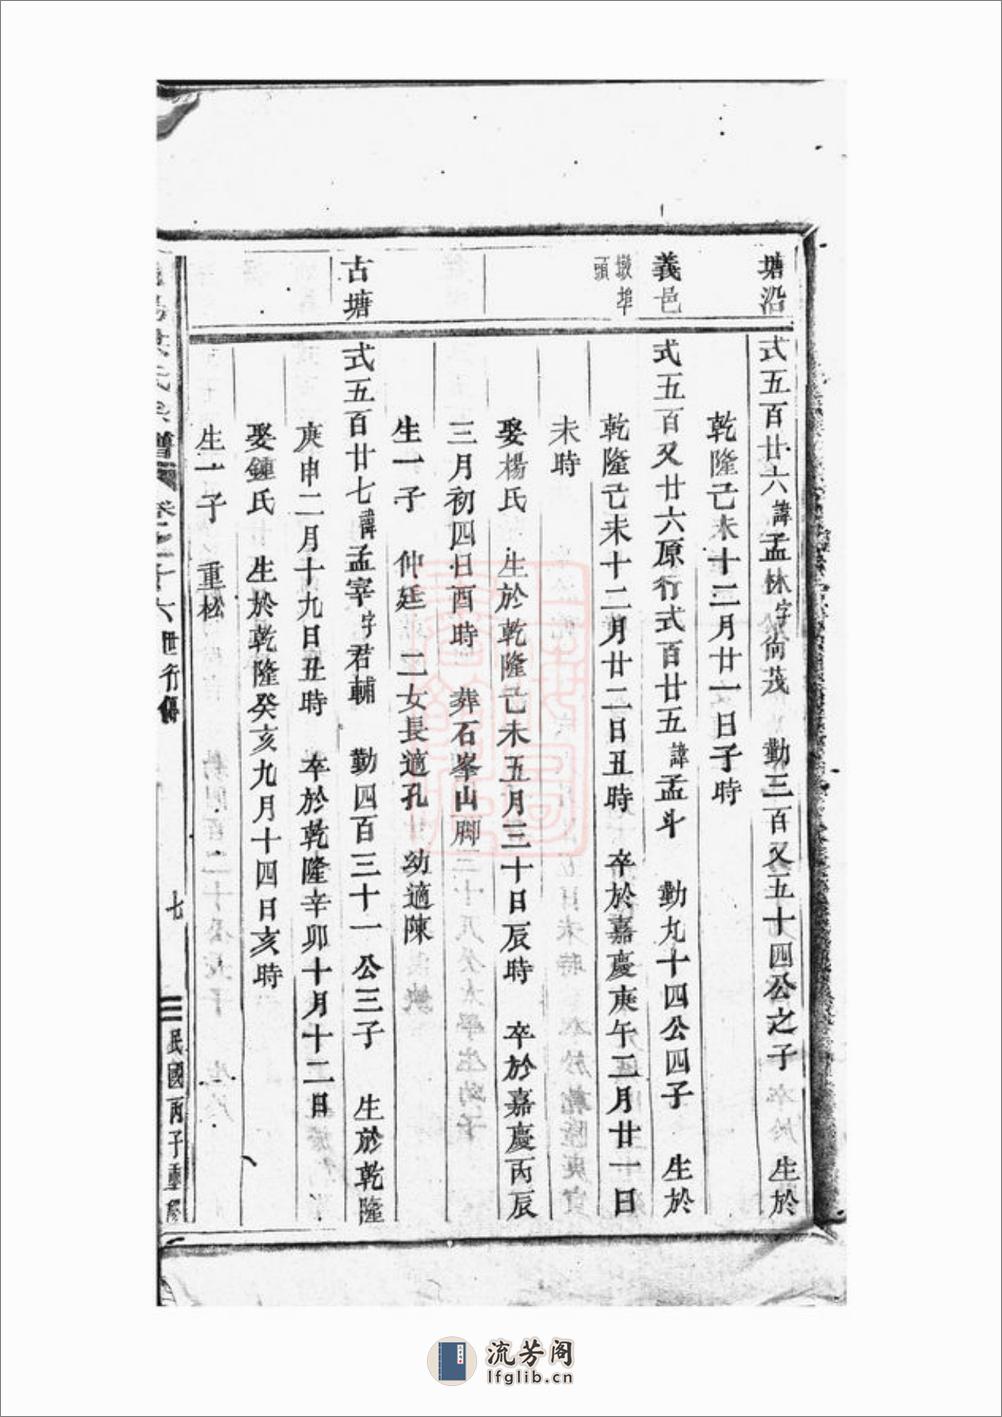 塘沿
式五百廿六諱孟林字尙茂 勤三百又五十四公之子 生於
乾隆己未十二月廿一日子時
義邑
墩埠頭
式五百又廿六原行式百廿五諱孟斗 勤九十四公四子 生於
乾隆己未十二月廿二日丑時 卒於嘉慶庚午三月廿一日
未時
娶楊氏 生於乾隆己未五月三十日辰時 卒於嘉慶丙辰
三月初四日酉時 葬石峯山脚
生一子 仲廷 二女長適孔 幼適陳
古塘
式五百廿七諱孟宰字君輔 勤四百三十一公三子 生於乾隆
庚申二月十九日丑時 卒於乾隆辛卯十月十二日
娶鍾氏 生於乾隆癸亥九月十四日亥時
生一子 重松
氏宗譜 卷之十六 世行傳 七 民國丙子重修
流芳阁
lfglib.cn